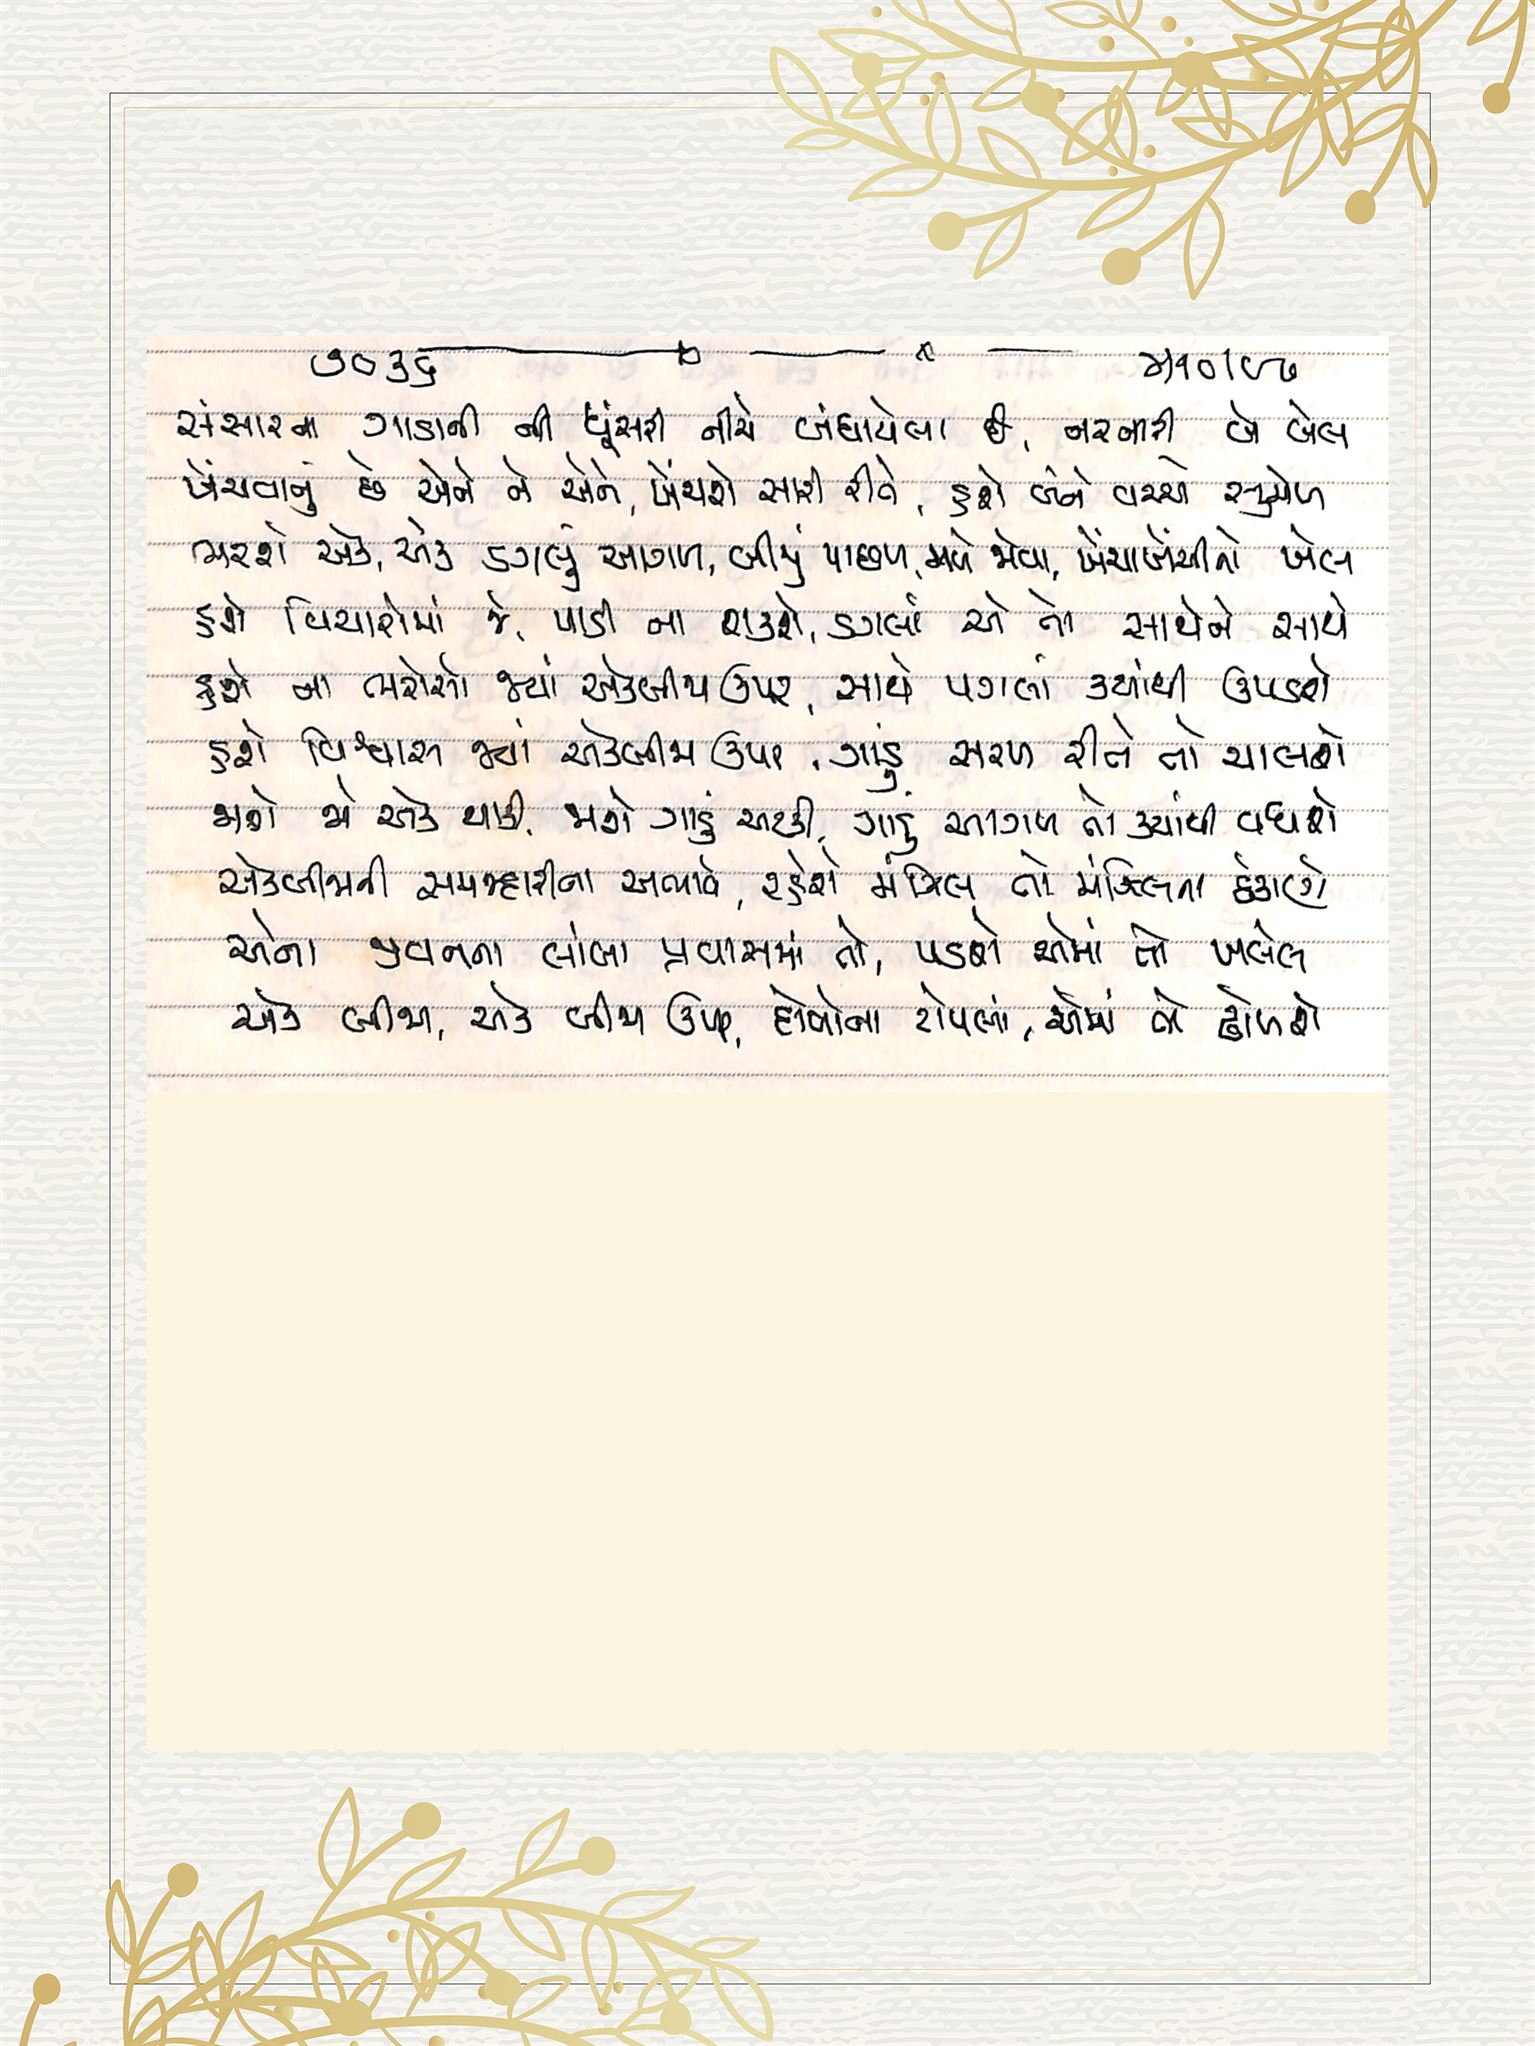 ૭૦૩૬
સંસારના ગાડાની ની ધૂંસરી નીચે બંધાયેલા છે, નરનારી બે બેલ
ખેંચવાનું છે એને ને એને, ખેંચશે સારી રીતે, હશે બંને વચ્ચે સુમેળ
ભરશે એક, એક ડગલું આગળ, બીજું પાછળ, મળે જોવા, ખેંચાખેંચીનો ખેલ
હશે વિચારોમાં જે, પાડી ના શકશે, ડગલાં એ તો સાથેને સાથે
હશે ના ભરોસો જ્યાં એકબીજા ઉપર, સાથે પગલાં ક્યાંથી ઉપડશે
હશે વિશ્વાસ જ્યાં એકબીજા ઉપર, ગાડું સરળ રીતે તો ચાલશે
જાશે જો એક થાકી, જાશે ગાડું અટકી, ગાડું આગળ તો ક્યાંથી વધશે
એકબીજાની સમજદારીના અભાવે, રહેશે મંઝિલ તો મંઝિલના ઠેકાણે
એના જીવનના લાંબા પ્રવાસમાં તો, પડશે એમાં તો ખલેલ
એક બીજા, એક બીજા ઉપર, દોષોના ટોપલાં, એમાં તો ઢોળશે